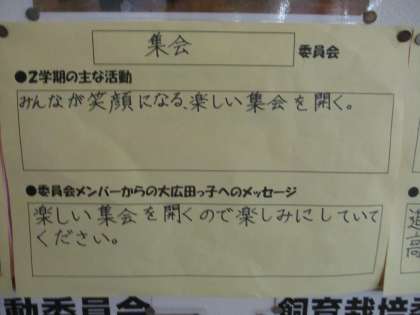 集会 委員会
●2学期の主な活動
みんなが笑顔になる、楽しい集会を開く。
●委員会メンバーからの大広田っ子へのメッセージ
楽しい集会を開くので楽しみにしていて
ください。
高
動委員会 飼育栽培